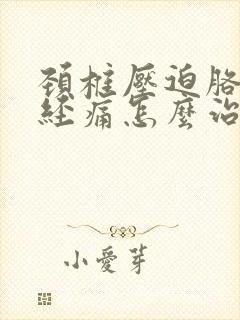 頚椎壓迫胳
經痛怎麼治
小愛芽